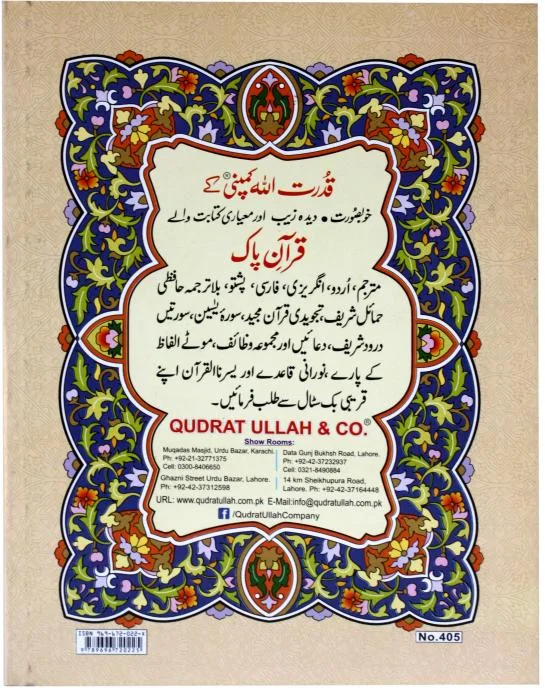 قدرت اللہ کمپنی® کے
خوبصورت • دیدہ زیب اور معیاری کتابت والے
قرآنِ پاک
مترجم، اُردو، انگریزی، فارسی، پشتو، بلا ترجمہ حافظی
حمائل شریف، تجویدی قرآن مجید، سورۂ یٰسین، سورتیں
درود شریف، دعائیں اور مجموعہ وظائف، موٹے الفاظ
کے پارے، نورانی قاعدے اور یسرنا القرآن اپنے
قریبی بک سٹال سے طلب فرمائیں۔
QUDRAT ULLAH & CO.®
Show Rooms:
Muqadas Masjid, Urdu Bazar, Karachi.
Ph: +92-21-32771375
Cell: 0300-8406650
Ghazni Street Urdu Bazar, Lahore.
Ph: +92-42-37312598
Data Gunj Bukhsh Road, Lahore.
Ph: +92-42-37232937
Cell: 0321-8490884
14 km Sheikhupura Road,
Lahore. Ph: +92-42-37164448
URL: www.qudratullah.com.pk E-Mail:info@qudratullah.com.pk
f /QudratUllahCompany
ISBN 969-672-022-X
9789696720225
No.405